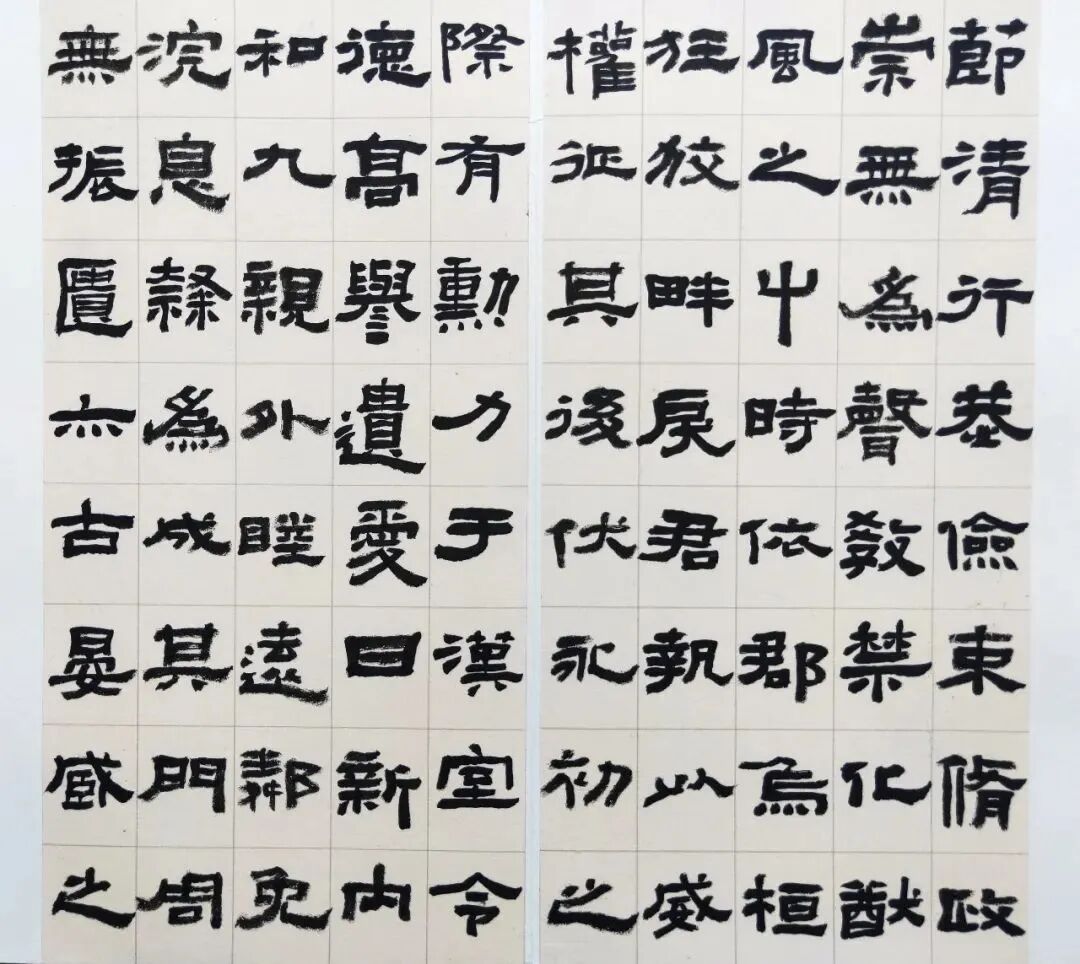 節清行恭儉束脩政
崇無為聲教禁化猷
風之中時依郡烏桓
狂狡畔戾君執以威
權征其後伏永初之
際有勳力于漢室令
德高譽遺愛日新内
和九親外睦遠鄰免
浣息隸為成其門周
無振匱亦古晏臧之